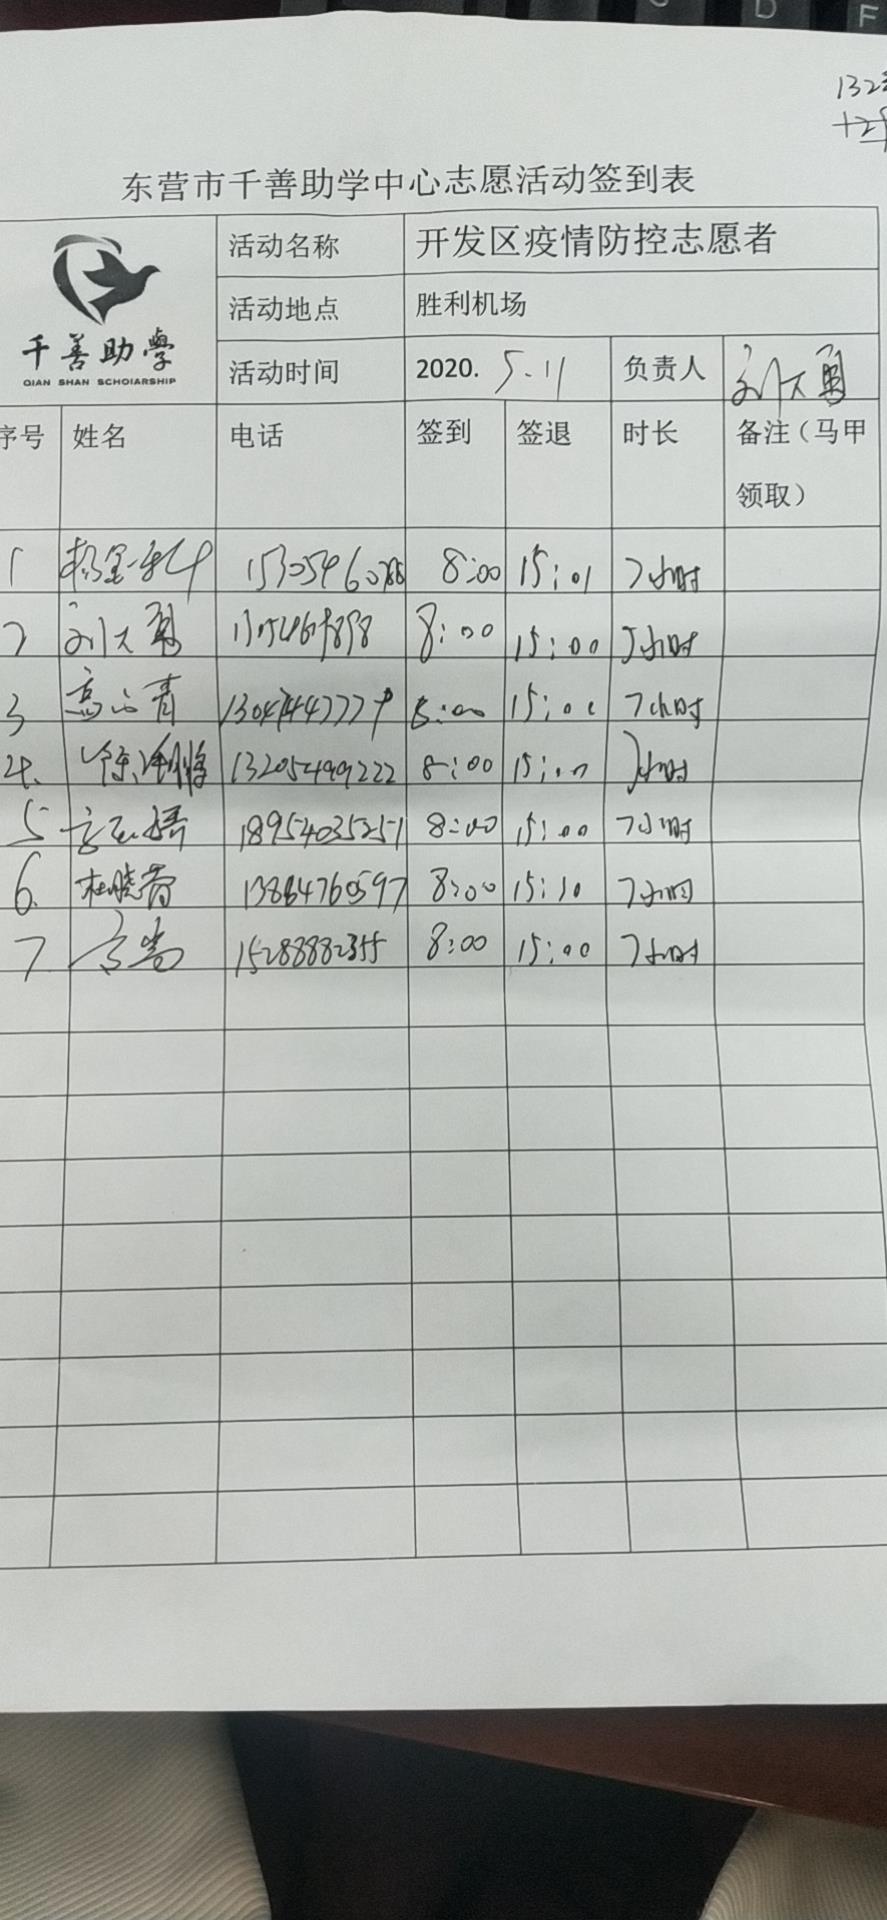 132
东营市千善助学中心志愿活动签到表
千善助學
QIAN SHAN SCHOIARSHIP
活动名称 开发区疫情防控志愿者
活动地点 胜利机场
活动时间 2020. 5.11 负责人 刘大勇
序号 姓名 电话 签到 签退 时长 备注（马甲
领取）
1 8:00 15:01 7小时
2 刘大勇 8:00 15:00 小时
3 8:00 15:00 7小时
4. 13205499222 8:00 15:00 7小时
5 18954035251 8:00 15:00 7小时
6. 杜晓青 13864760597 8:00 15:10 7小时
7 15288882355 8:00 15:00 7小时